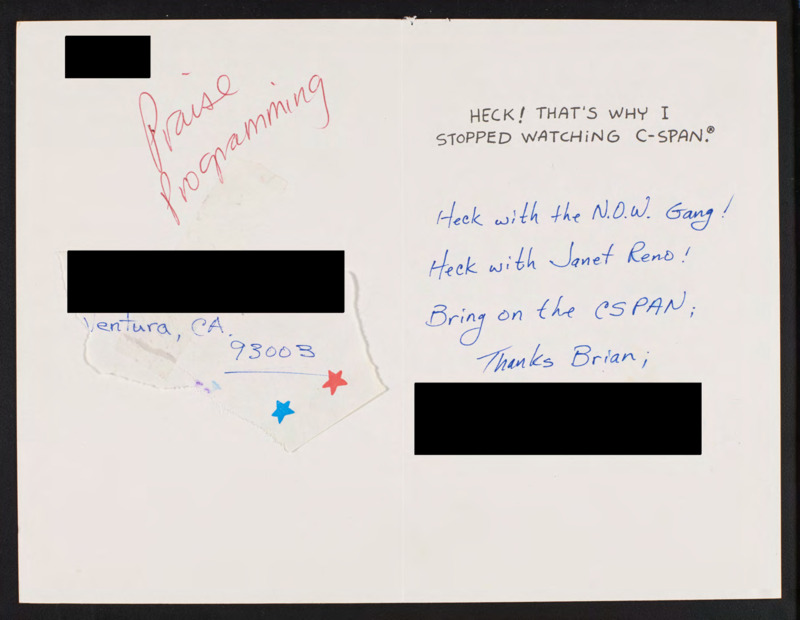 Praise
Programming
Ventura, CA.
93003
HECK! THAT'S WHY I
STOPPED WATCHING C-SPAN.®
Heck with the N.O.W. Gang!
Heck with Janet Reno!
Bring on the CSPAN;
Thanks Brian;